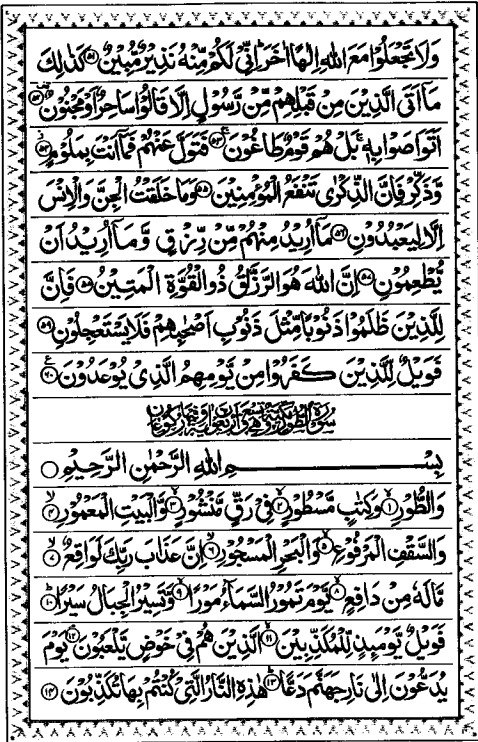 وَلَا تَجْعَلُوْا مَعَ اللّٰهِ اِلٰهًا اٰخَرَ ؕ اِنِّیْ لَكُمْ مِّنْهُ نَذِیْرٌ مُّبِیْنٌ ۝۵۱ كَذٰلِكَ
مَاۤ اَتَی الَّذِیْنَ مِنْ قَبْلِهِمْ مِّنْ رَّسُوْلٍ اِلَّا قَالُوْا سَاحِرٌ اَوْ مَجْنُوْنٌ ۝۵۲
اَتَوَاصَوْا بِهٖ ۚ بَلْ هُمْ قَوْمٌ طَاغُوْنَ ۝۵۳ فَتَوَلَّ عَنْهُمْ فَمَاۤ اَنْتَ بِمَلُوْمٍ ۝۵۴
وَّذَكِّرْ فَاِنَّ الذِّكْرٰی تَنْفَعُ الْمُؤْمِنِیْنَ ۝۵۵ وَمَا خَلَقْتُ الْجِنَّ وَالْاِنْسَ
اِلَّا لِیَعْبُدُوْنِ ۝۵۶ مَاۤ اُرِیْدُ مِنْهُمْ مِّنْ رِّزْقٍ وَّمَاۤ اُرِیْدُ اَنْ
یُّطْعِمُوْنِ ۝۵۷ اِنَّ اللّٰهَ هُوَ الرَّزَّاقُ ذُو الْقُوَّةِ الْمَتِیْنُ ۝۵۸ فَاِنَّ
لِلَّذِیْنَ ظَلَمُوْا ذَنُوْبًا مِّثْلَ ذَنُوْبِ اَصْحٰبِهِمْ فَلَا یَسْتَعْجِلُوْنِ ۝۵۹
فَوَیْلٌ لِّلَّذِیْنَ كَفَرُوْا مِنْ یَّوْمِهِمُ الَّذِیْ یُوْعَدُوْنَ ۝۶۰
سُوْرَةُ الطُّوْرِ مَكِّیَّةٌ وَّهِیَ تِسْعٌ وَّاَرْبَعُوْنَ اٰیَةً وَّفِیْهَا رُكُوْعَانِ
بِسْمِ اللّٰهِ الرَّحْمٰنِ الرَّحِیْمِ ۝
وَالطُّوْرِ ۝۱ وَكِتٰبٍ مَّسْطُوْرٍ ۝۲ فِیْ رَقٍّ مَّنْشُوْرٍ ۝۳ وَّالْبَیْتِ الْمَعْمُوْرِ ۝۴
وَالسَّقْفِ الْمَرْفُوْعِ ۝۵ وَالْبَحْرِ الْمَسْجُوْرِ ۝۶ اِنَّ عَذَابَ رَبِّكَ لَوَاقِعٌ ۝۷
مَّالَهٗ مِنْ دَافِعٍ ۝۸ یَّوْمَ تَمُوْرُ السَّمَآءُ مَوْرًا ۝۹ وَّتَسِیْرُ الْجِبَالُ سَیْرًا ۝۱۰
فَوَیْلٌ یَّوْمَىِٕذٍ لِّلْمُكَذِّبِیْنَ ۝۱۱ الَّذِیْنَ هُمْ فِیْ خَوْضٍ یَّلْعَبُوْنَ ۝۱۲ یَوْمَ
یُدَعُّوْنَ اِلٰی نَارِ جَهَنَّمَ دَعًّا ۝۱۳ هٰذِهِ النَّارُ الَّتِیْ كُنْتُمْ بِهَا تُكَذِّبُوْنَ ۝۱۴